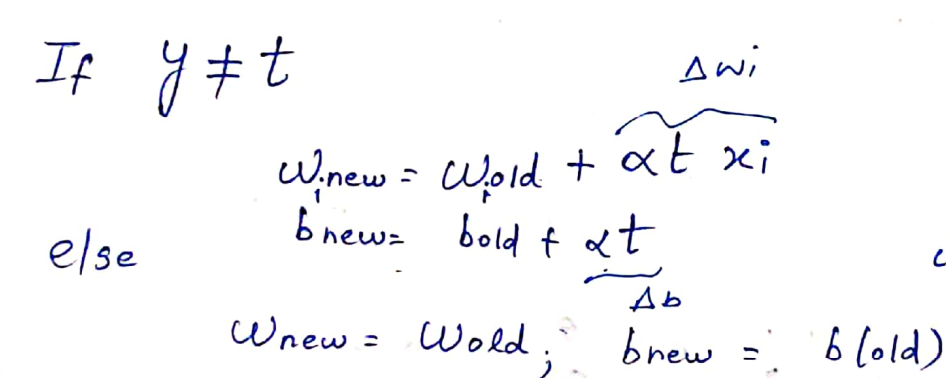 If y ≠ t
Δwi
wi new = wi old + αt xi
b new = bold + αt
else
Δb
Wnew = Wold; bnew = b(old)